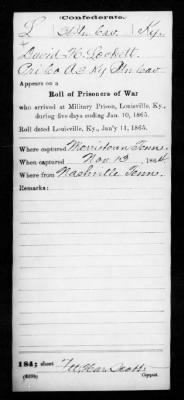 Confederate.
L Cav. Ky.
David H. Lockett
Pri Co A 3 Ky Cav
Appears on a
Roll of Prisoners of War
who arrived at Military Prison, Louisville, Ky.,
during five days ending Jan. 10, 1865.
Roll dated Louisville, Ky., Jan'y 11, 1865.
Where captured Morristown Tenn.
When captured Nov 13, 1864
Where from Nashville Tenn.
Remarks:
184; sheet
Copyist.